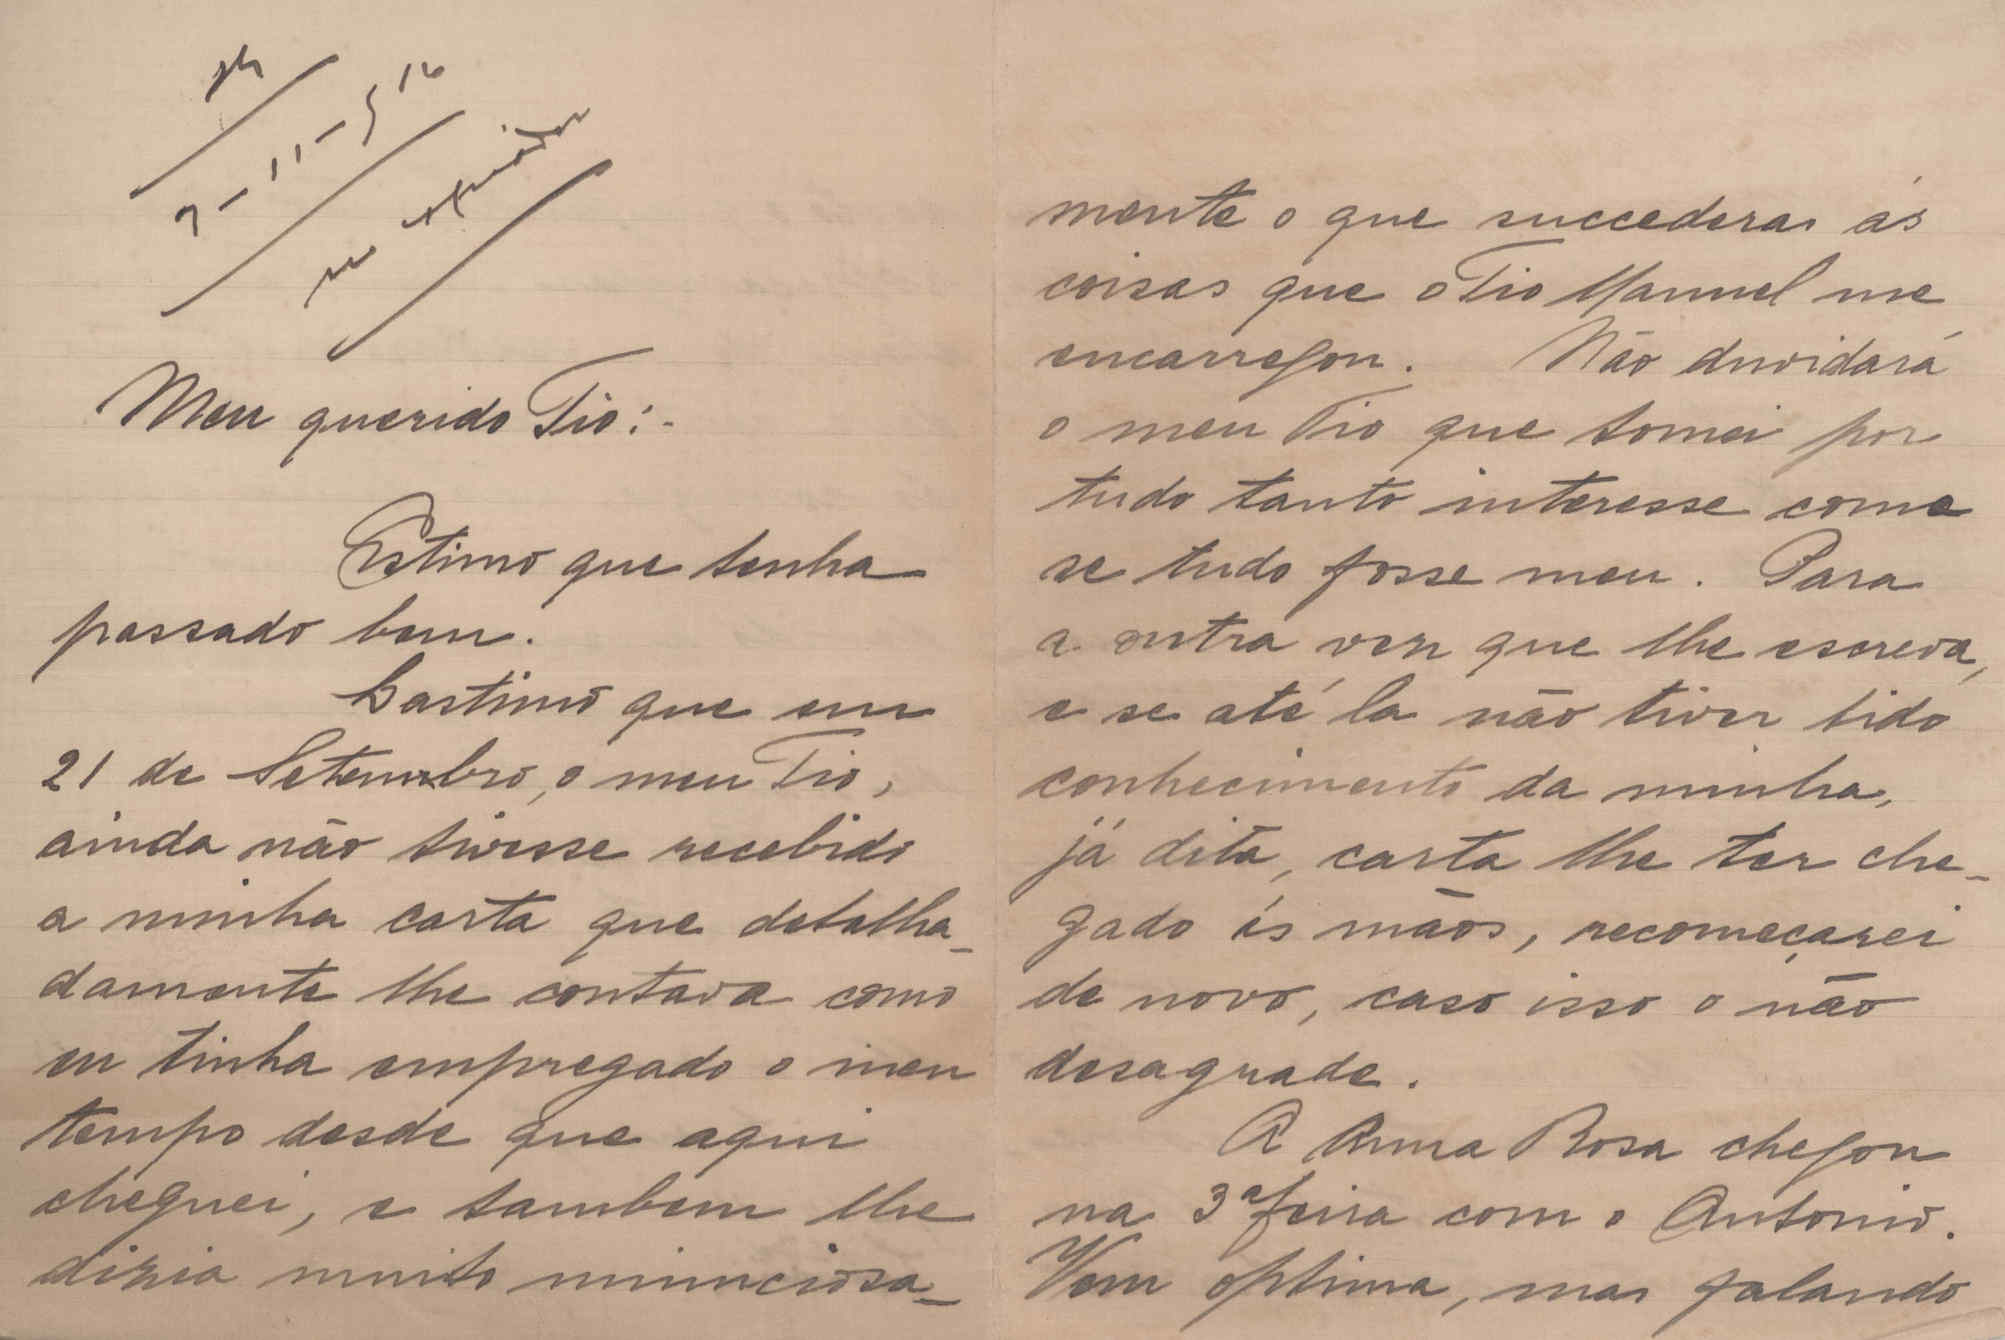 Meu querido Tio:-
Estimo que tenha
passado bem.
Lastimo que em
21 de Setembro, o meu Tio,
ainda não tivesse recebido
a minha carta que detalha-
damente lhe contava como
eu tinha empregado o meu
tempo desde que aqui
cheguei, e tambem lhe
dizia muito minuciosa-
mente o que succedera ás
coisas que o Tio Manuel me
encarregou. Não duvidará
o meu Tio que tomei por
tudo tanto interesse como
se tudo fosse meu. Para
a outra vez que lhe escreva,
e se até la não tiver tido
conhecimento da minha,
já dita, carta lhe ter che-
gado ás mãos, recomeçarei
de novo, caso isso o não
desagrade.
A Anna Rosa chegou
na 3ª feira com o Antonio.
Vem optima, mas falando